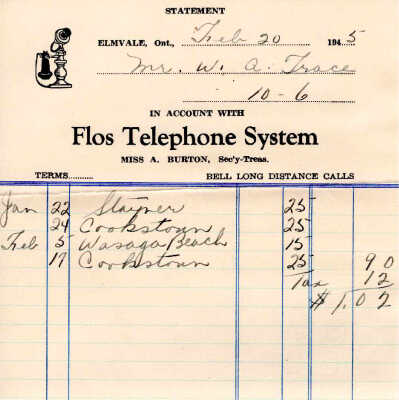 STATEMENT
ELMVALE, Ont., Feb 20 1945
Mr. W. A. Trace
10-6
IN ACCOUNT WITH
Flos Telephone System
MISS A. BURTON, Sec'y-Treas.
TERMS.......... BELL LONG DISTANCE CALLS
Jan 22 Stayner 25
24 Cookstown 25
Feb 5 Wasaga Beach 15
17 Cookstown 25 90
Tax 12
$1.02